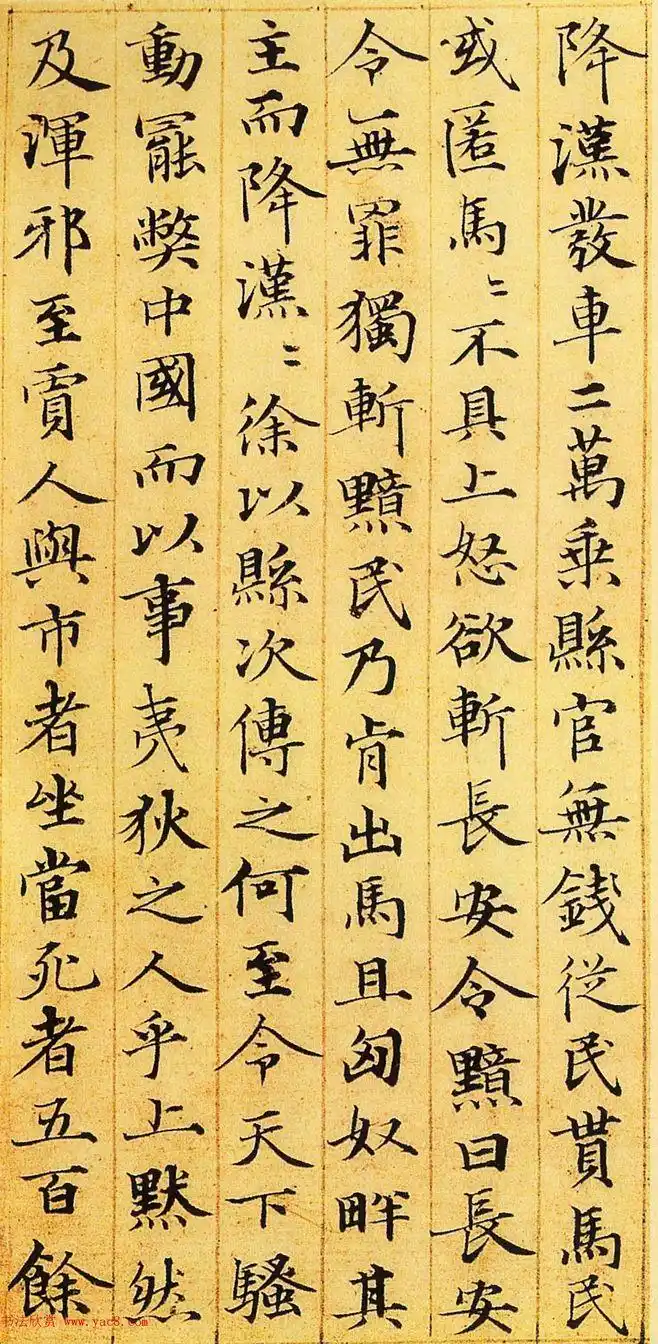 降漢發車二萬乗縣官無錢從民貰馬民
或匿馬〻不具上怒欲斬長安令黯曰長安
令無罪獨斬黯民乃肯出馬且匈奴畔其
主而降漢〻徐以縣次傳之何至令天下騷
動罷弊中國而以事夷狄之人乎上默然
及渾邪至賈人與市者坐當死者五百餘
书法欣赏 www.yac8.com